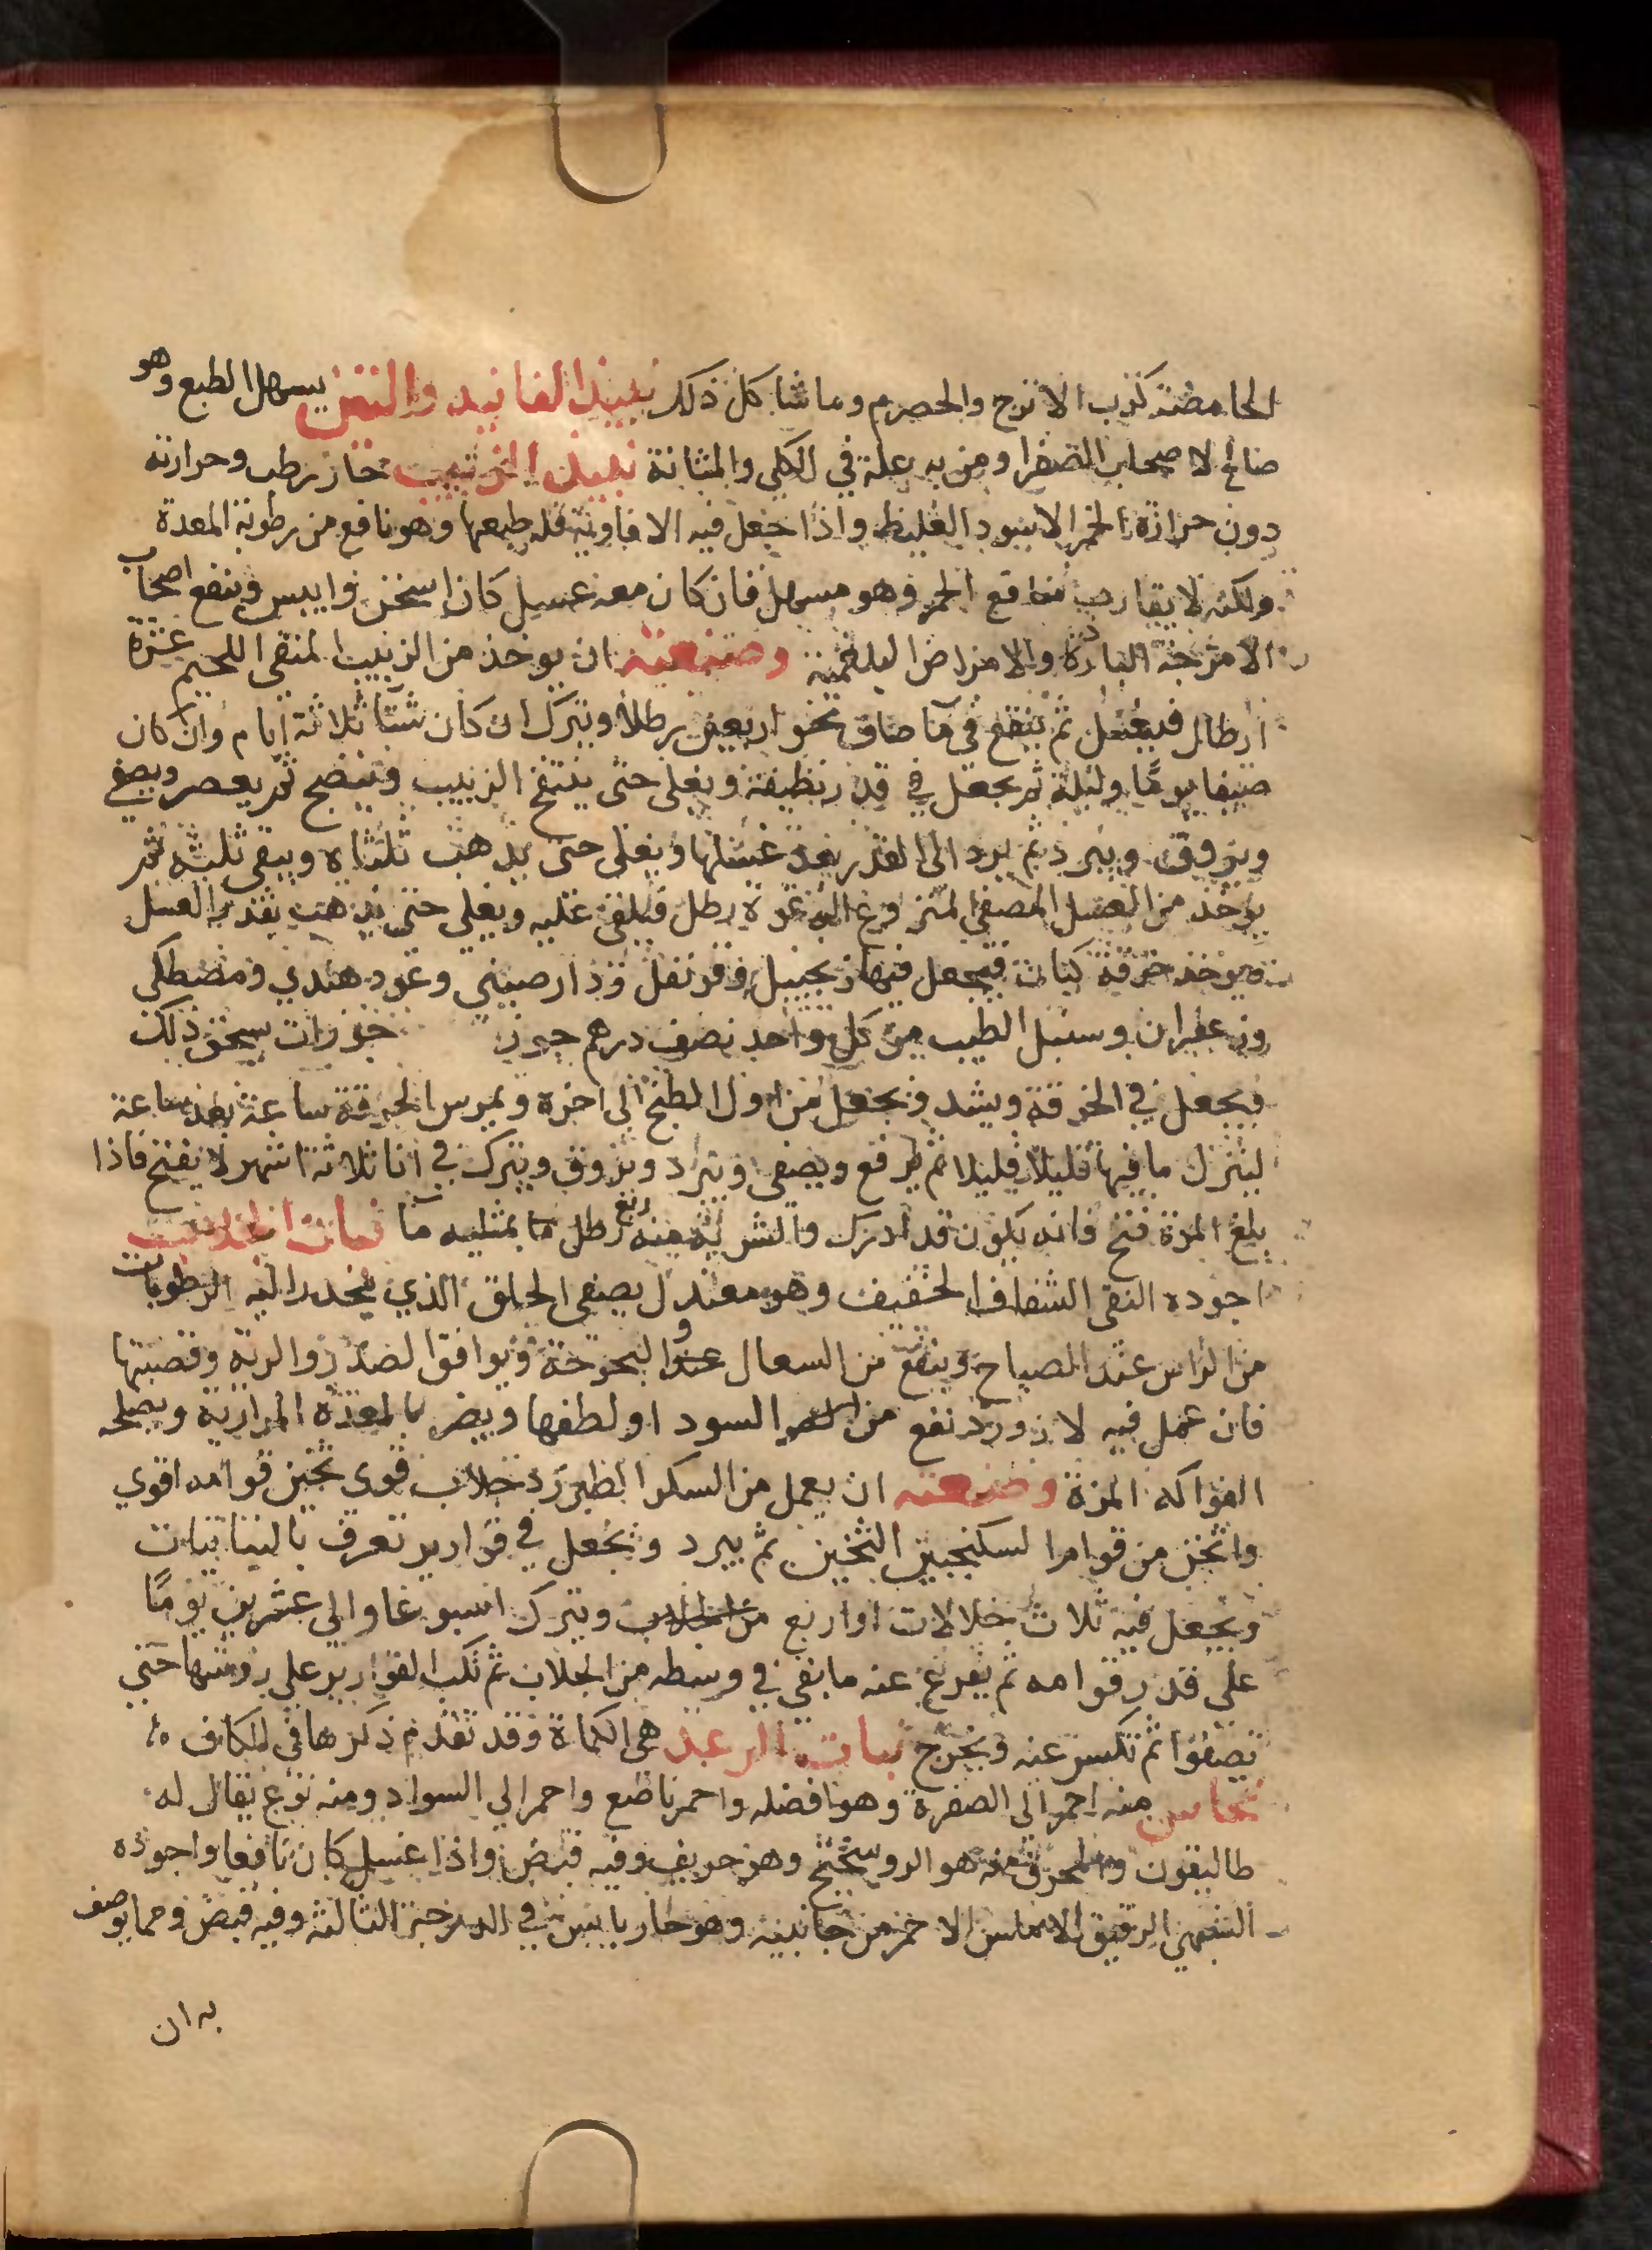 الحامضة كرب الاترج والحصرم وما شاكل ذلك نبيذ الفانيد والتين يسهل الطبع وهو
صالح لاصحاب الصفرا ومن به علة في الكلي والمثانة نبيذ الزبيب حار رطب وحرارته
دون حرارة الخمر الاسود الغليظ واذا جعل فيه الافاويه قلد طبعها وهو نافع من رطوبة المعدة
ولكنه لا يقارب منافع الخمر وهو مسهل فان كان معه عسيل كان اسخن وايبس وينفع اصحاب
الامزجة الباردة والامراض البلغمية وصنعته ان يوخذ من الزبيب المنقى اللحيم عشرة
ارطال فيغسل ثم ينقع في ما صاف نحو اربعين رطلا ويترك ان كان شتا ثلاثة ايام وان كان
صيفا يوما وليلة ثم يجعل في قدر نظيفة ويغلى حتى ينتفخ الزبيب وينضج ثم يعصر ويصفى
ويروق ويبرد ثم يرد الى القدر بعد غسلها ويغلى حتى يذهب ثلثاه ويبقى ثلثه ثم
يوخذ من العسل المصفى المنزوع الرغوة رطل فيلقى عليه ويغلى حتى يذهب بقدر العسل
ويوخذ خرقة كتان فيجعل فيها زنجبيل وقرنفل ودارصيني وعود هندي ومصطكي
وزعفران وسنبل الطيب من كل واحد نصف درهم جوز جوزات يسحق ذلك
ويجعل في الخرقة ويشد ويجعل من اول الطبخ الى اخره ويمرس الخرقة ساعة بعد ساعة
لينزل ما فيها قليلا قليلا ثم يرفع ويصفى ويبرد ويروق ويترك في انا ثلاثة اشهر لا يفتح فاذا
بلغ المدة فتح فانه يكون قد ادرك والشربة منه ربع رطل ما بمثليه ما نبات الجلاب
اجوده النقى الشفاف الخفيف وهو معتدل يصفى الحلق الذي ينحدر اليه الرطوبات
من الراس عند الصياح وينفع من السعال عند والبحوحة ويوافق الصدر والرية وقصبتها
فان عمل فيه لازورد نفع من السودا ولطفها ويضر بالمعدة المرارية ويصلحه
الفواكه المزة وصنعته ان يعمل من السكر الطبرزد جلاب قوي ثخين قوامه اقوي
واثخن من قوام السكنجبين الثخين ثم يبرد ويجعل في قوارير تعرف بالنباتيات
ويجعل فيه ثلاث خلالات او اربع من الجلاب ويترك اسبوعا والى عشرين يوما
على قدر قوامه ثم يفرغ عنه ما بقي في وسطه من الجلاب ثم تكب القوارير على روسها حتى
تصفوا ثم تكسر عنه ويخرج نبات الرعد هي الكماة وقد تقدم ذكرها في الكاف
نحاس منه احمر الى الصفرة وهو افضله واحمر ناصع واحمر الي السواد ومنه نوع يقال له
طاليقون والمحرق منه هو الروسختج وهو حريف وفيه قبض واذا غسل كان نافعا واجوده
الشبهى الرقيق الاملس الاحمر من جانبيه وهو حار يابس في الدرجة الثالثة وفيه قبض ومما يوصف
به ان